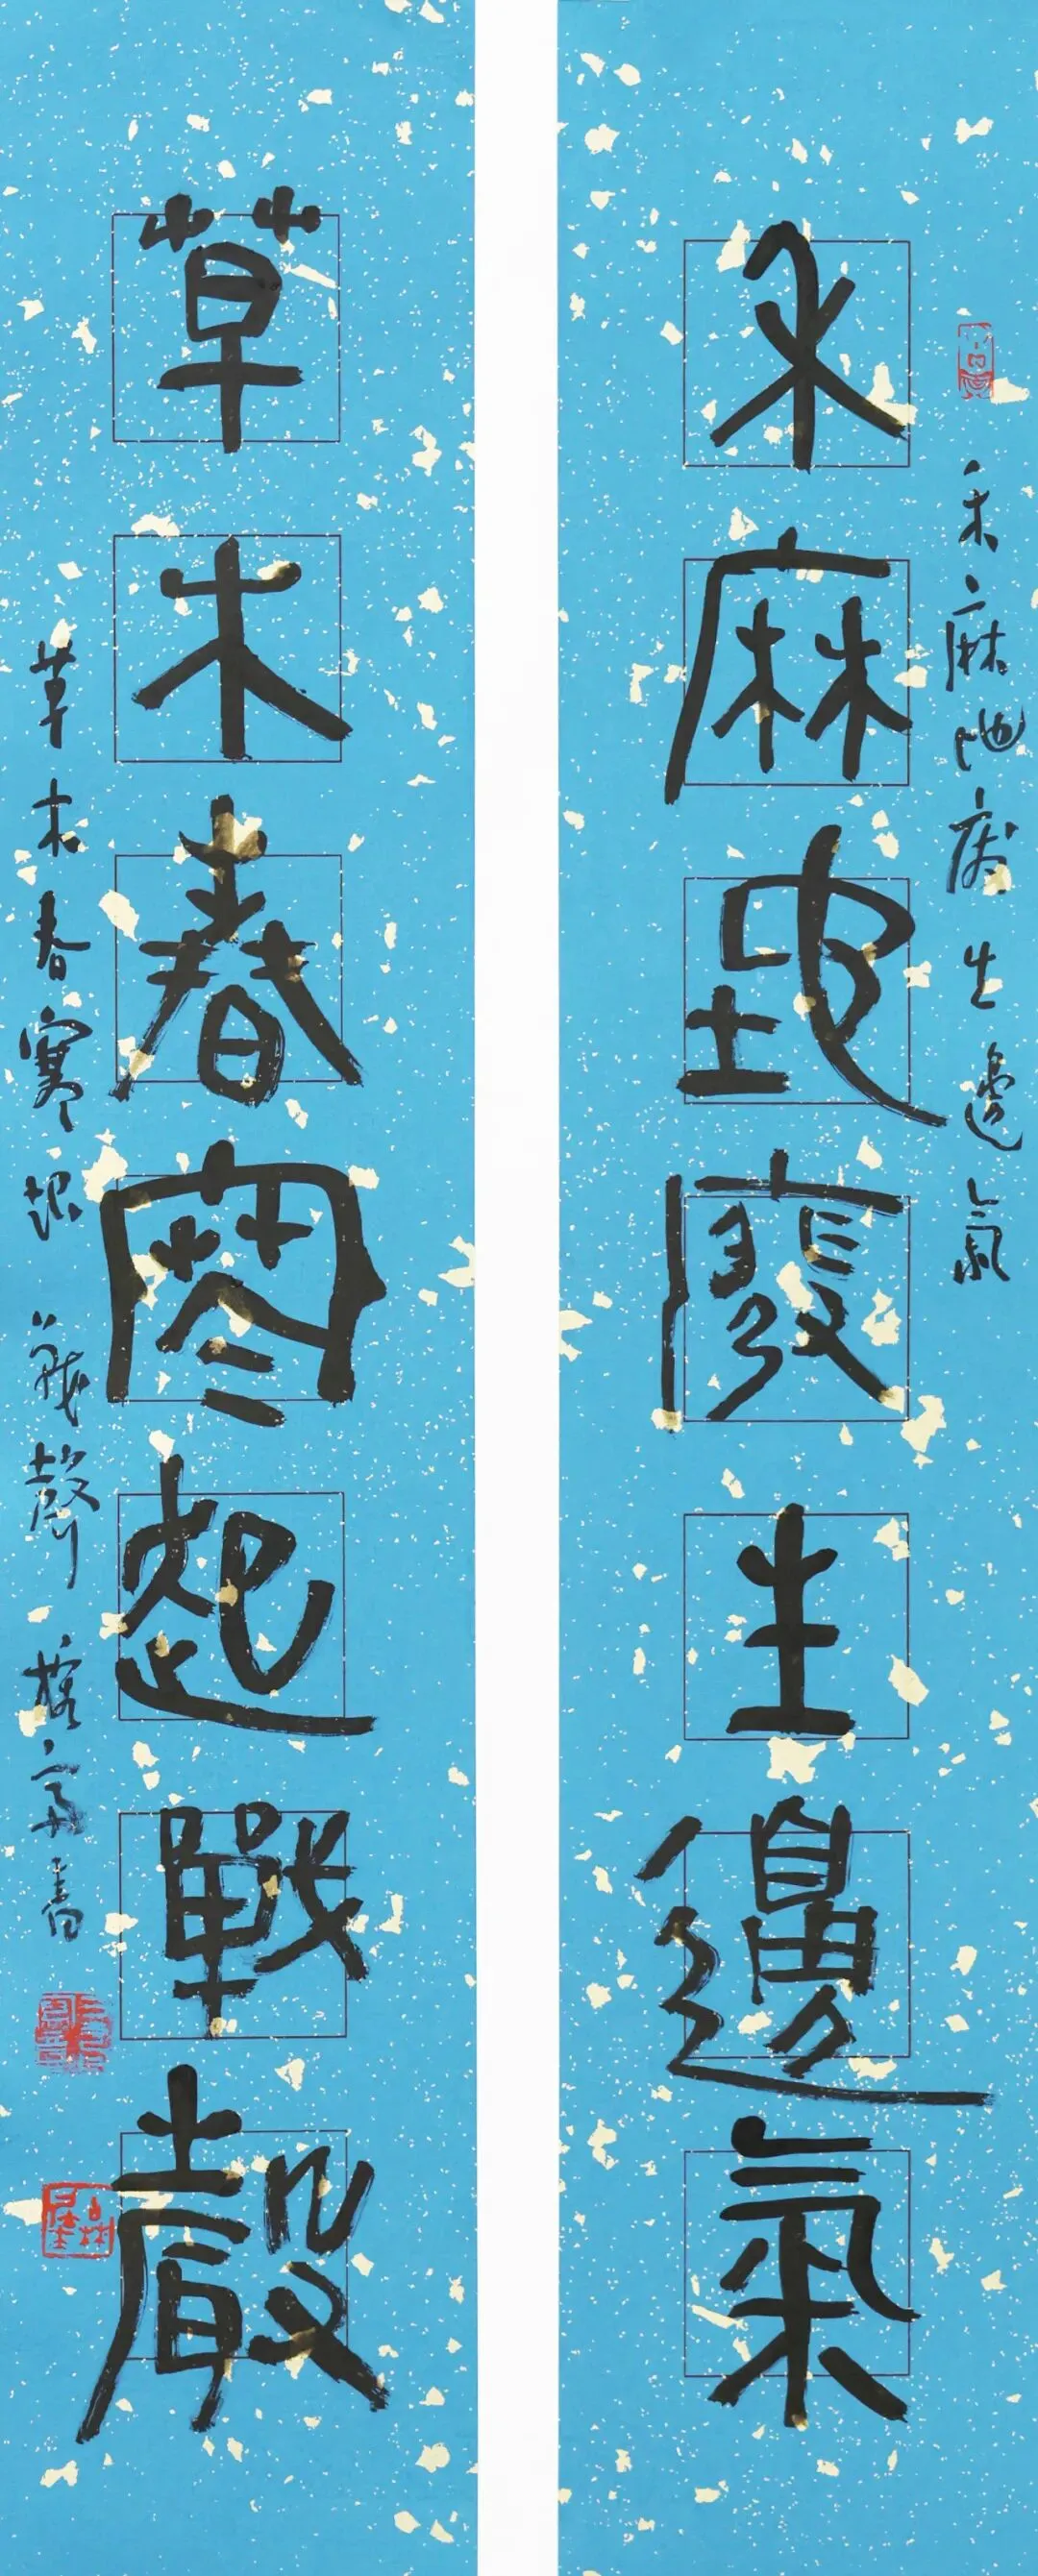 禾麻地廢生邊氣
禾麻地廢生邊氣
草木春寒起戰聲
草木春寒起戰聲
書